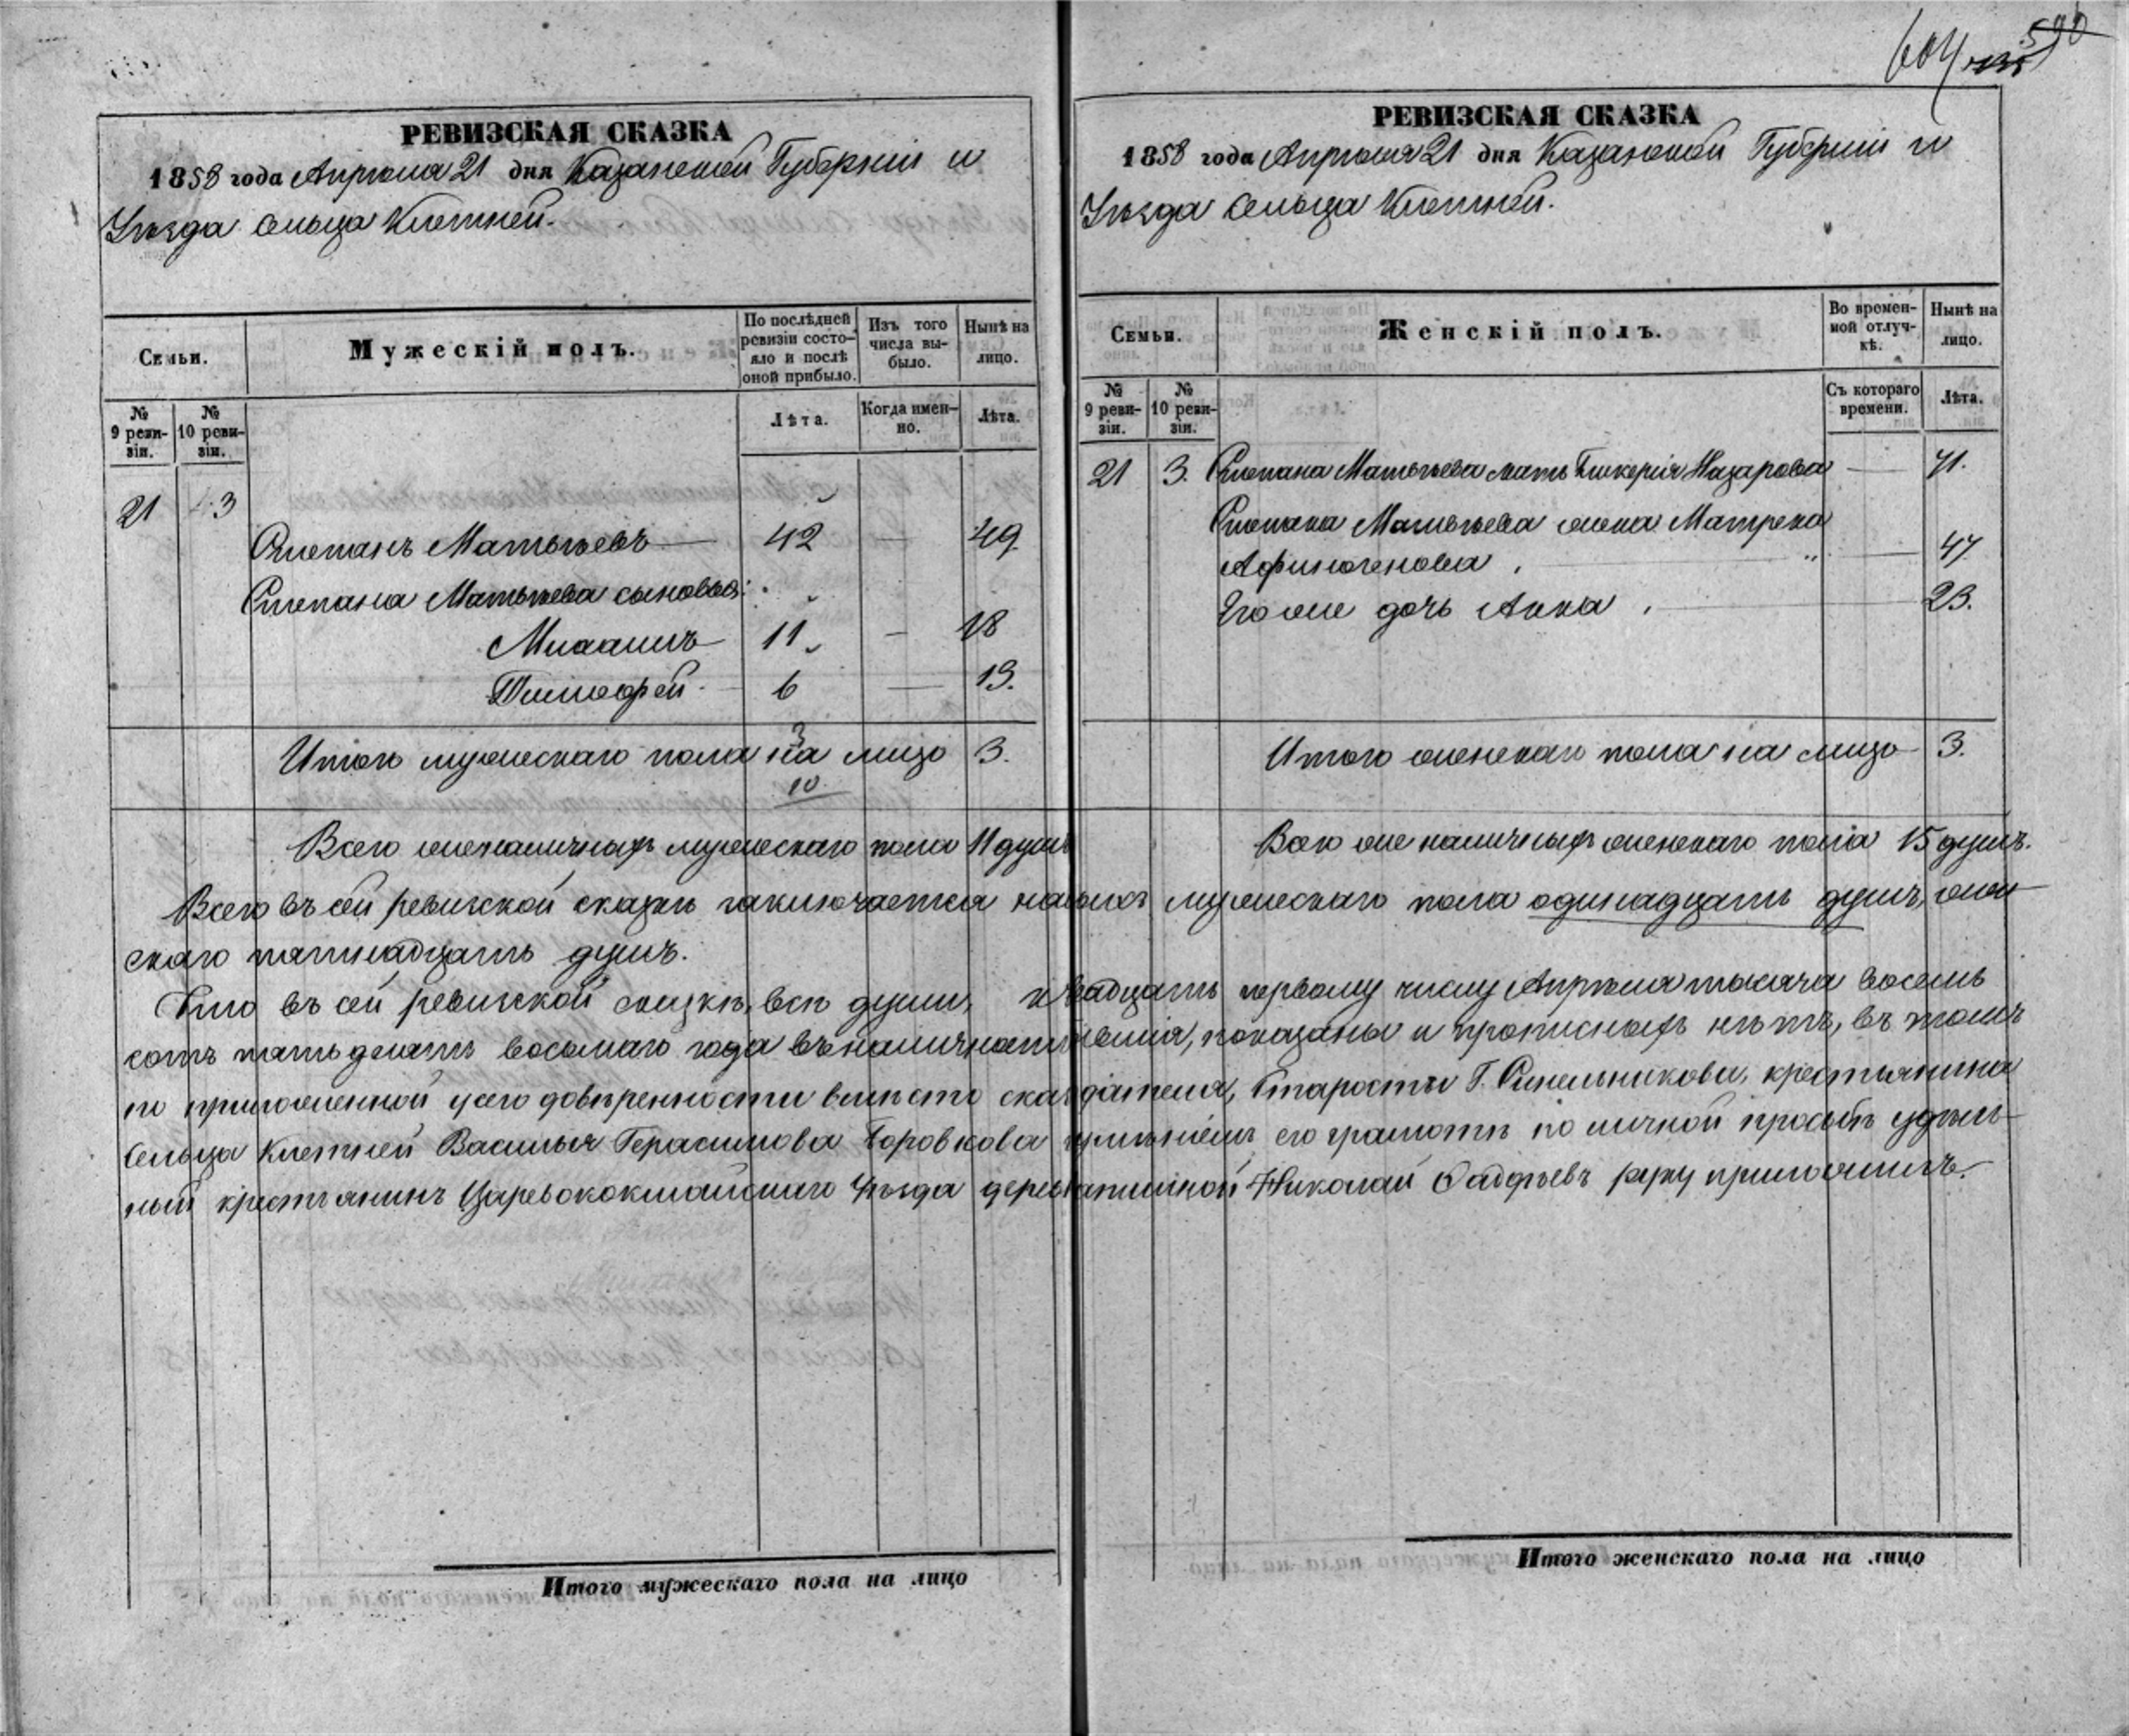 604 590
РЕВИЗСКАЯ СКАЗКА
1858 года Апреля 21 дня Казанской Губерніи и
Уѣзда сельца Клетней.
Семьи.
Мужескій полъ.
По послѣдней ревизіи состояло и послѣ оной прибыло.
Изъ того числа выбыло.
Нынѣ на лицо.
№ 9 ревизіи.
№ 10 ревизіи.
Лѣта.
Когда именно.
Лѣта.
21 3
Степанъ Матвѣевъ 42 — 49.
Степана Матвѣева сыновья:
Михаилъ 11 — 18
Тимофей 6 — 13.
3
Итого мужескаго пола на лицо 3.
10
Всего же наличныхъ мужескаго пола 11 душъ
РЕВИЗСКАЯ СКАЗКА
1858 года Апреля 21 дня Казанской Губерніи и
Уѣзда сельца Клетней.
Семьи.
Женскій полъ.
Во временной отлучкѣ.
Нынѣ на лицо.
№ 9 ревизіи.
№ 10 ревизіи.
Съ котораго времени.
Лѣта.
21 3. Степана Матвѣева мать Гликерия Назарова — 71.
Степана Матвѣева жена Матрена
Афиногенова — 47.
Его же дочь Анна — 23.
Итого женскаго пола на лицо 3.
Всего же наличныхъ женскаго пола 15 душъ.
Всего въ сей ревизской сказкѣ заключается мужескаго пола одинадцать душъ, жен-
скаго пятнадцать душъ.
Что въ сей ревизской сказкѣ, всѣ души, двадцать первому числу Апреля тысяча восемь
сотъ пятьдесятъ восьмаго года въ показаны и прописныхъ нѣтъ, въ томъ
по приложенной у сего довѣренности вмѣсто Старосты Г. Синельникова, крестьянина
сельца Клетней Василья Герасимова Боровкова его грамотѣ по личной просьбѣ удѣль-
ный крестьянинъ Царевококшайскаго Уѣзда Николай руку приложилъ.
Итого мужескаго пола на лицо
Итого женскаго пола на лицо